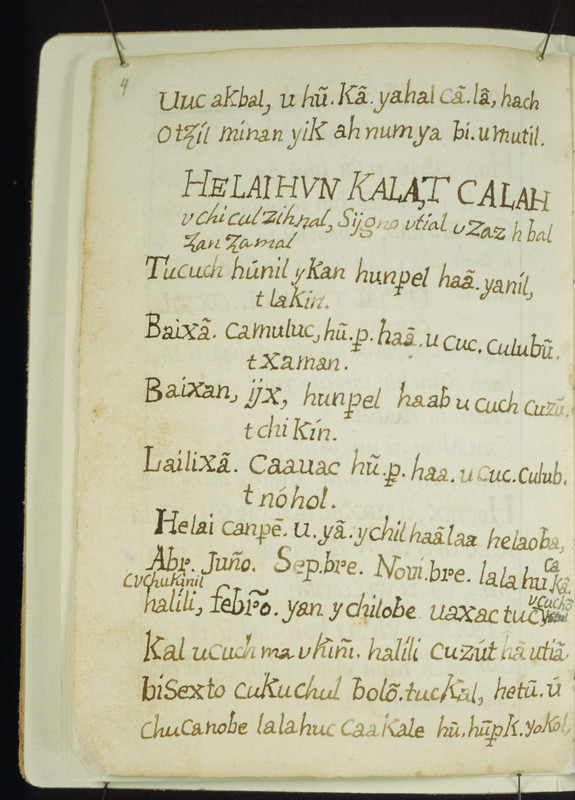 4
Uuc akbal, u hũ. Kã. yahal cã. lã, hach
otzíl minan yik ah numya bi. umutil.
HE LAI HVN KALA,T CALAH
v chi cul zihnal, Sijgno vtial v Zaz h bal
zan zamal
Tucuch húnil ykan hunpel haã. yaníl,
t lakin.
Baixã. camuluc, hũ. p. haã. u cuc. culubũ.
t xaman.
Baixan, ijx, hunpel haab u cuch cuzũ.
t chi kín.
Lailixã. Caauac hũ. p. haa. u cuc. culub.
t nóhol.
Helai canpẽ. u. yã. ychil haãlaa helaoba,
Abr. Juño. Sep.bre. Novi.bre. lala hu kã.
ca
cvchukinil
halíli, febrõ. yan ychilobe uaxac tuc
vcuchõ
Kal ucuch ma vkiñ. halíli cuzút hã utiã.
bisexto cukuchul bolõ. tuckal, hetũ. ú
chucanobe lalahuc caakale hũ. hũpk. yokol,